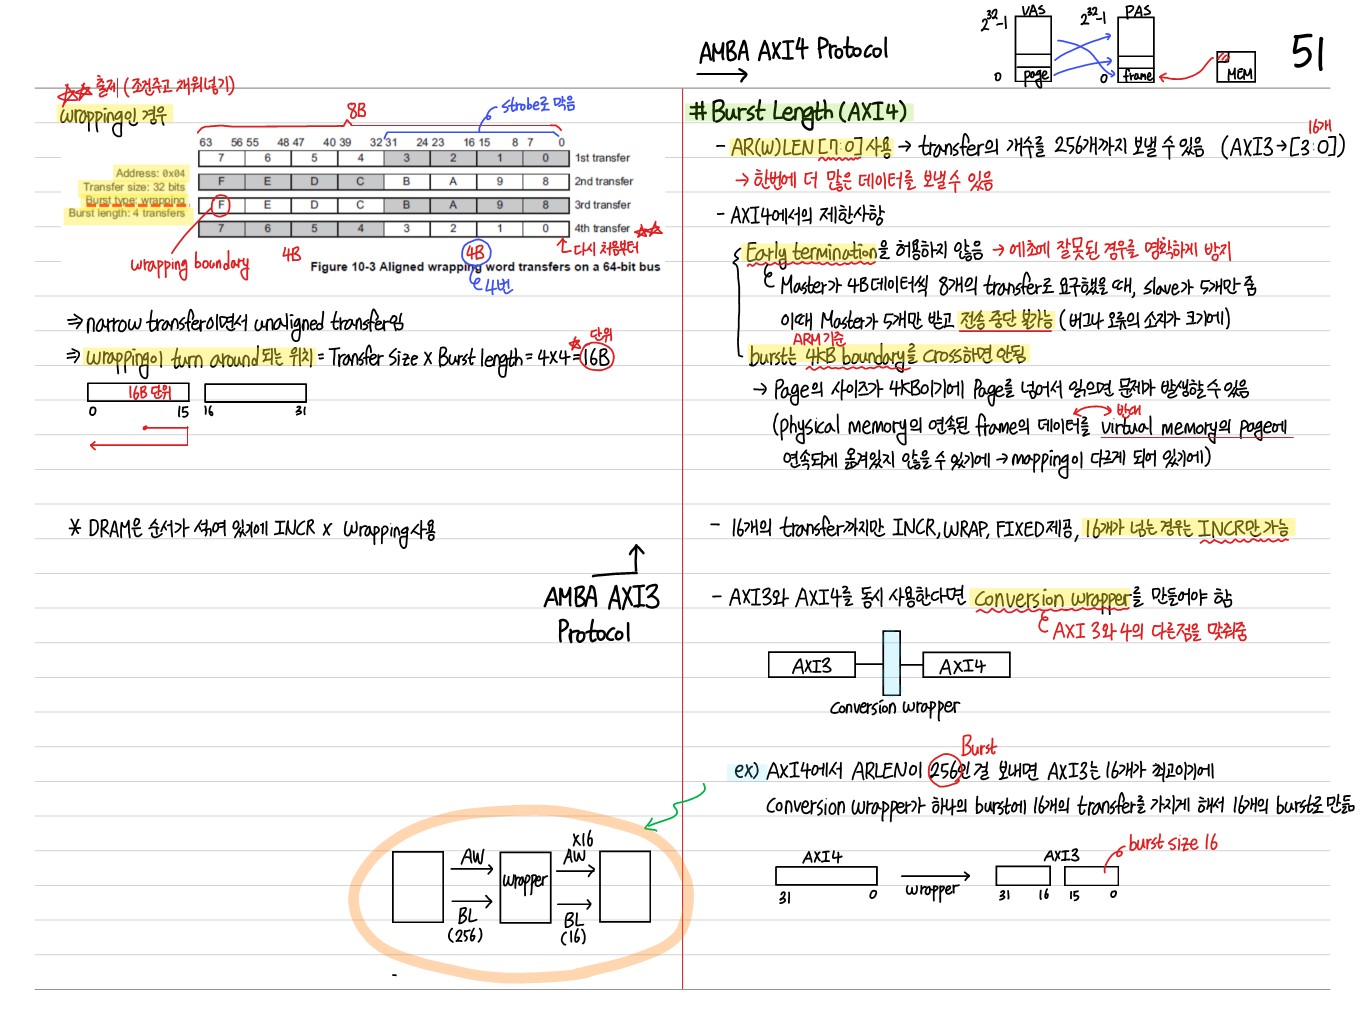 ☆☆ 출제 (조건주고 채워넣기)
wrapping인 경우
8B
strobe로 막음
63 56 55 48 47 40 39 32 31 24 23 16 15 8 7 0
7 6 5 4 3 2 1 0 1st transfer
F E D C B A 9 8 2nd transfer
F E D C B A 9 8 3rd transfer
7 6 5 4 3 2 1 0 4th transfer ☆☆
Address: 0x04
Transfer size: 32 bits
Burst type: wrapping
Burst length: 4 transfers
wrapping boundary
4B
4B
4번
다시 처음부터
Figure 10-3 Aligned wrapping word transfers on a 64-bit bus
⇒ narrow transfer이면서 unaligned transfer임
⇒ wrapping이 turn around 되는 위치 = Transfer Size x Burst length = 4x4 = 16B
☆ 단위
16B 단위
0 15 16 31
* DRAM은 순서가 섞여 있기에 INCR x Wrapping 사용
AMBA AXI3
Protocol
AW
BL
(256)
wrapper
x16
AW
BL
(16)
-
AMBA AXI4 Protocol
VAS
2^32-1
0
page
PAS
2^32-1
0
frame
MEM
51
# Burst Length (AXI4)
- AR(W)LEN [7:0] 사용 → transfer의 개수를 256개까지 보낼 수 있음 (AXI3→[3:0])
16개
→ 한번에 더 많은 데이터를 보낼 수 있음
- AXI4에서의 제한사항
Early termination을 허용하지 않음 → 애초에 잘못된 경우를 명확하게 방지
Master가 4B 데이터씩 8개의 transfer로 요구했을 때, slave가 5개만 줌
이때 Master가 5개만 받고 전송 중단 불가능 (버그나 오류의 소지가 크기에)
ARM 기준
burst는 4KB boundary를 cross하면 안됨
→ Page의 사이즈가 4KB이기에 Page를 넘어서 읽으면 문제가 발생할 수 있음
반대
(physical memory의 연속된 frame의 데이터를 virtual memory의 page에
연속되게 옮겨있지 않을 수 있기에 → mapping이 다르게 되어 있기에)
- 16개의 transfer까지만 INCR, WRAP, FIXED 제공, 16개가 넘는 경우는 INCR만 가능
- AXI3와 AXI4를 동시 사용한다면 Conversion wrapper를 만들어야 함
AXI 3와 4의 다른점을 맞춰줌
AXI3
AXI4
Conversion wrapper
Burst
ex) AXI4에서 ARLEN이 256인걸 보내면 AXI3는 16개가 최고이기에
Conversion wrapper가 하나의 burst에 16개의 transfer를 가지게 해서 16개의 burst로 만듦
burst size 16
AXI4
31 0
wrapper
AXI3
31 16 15 0